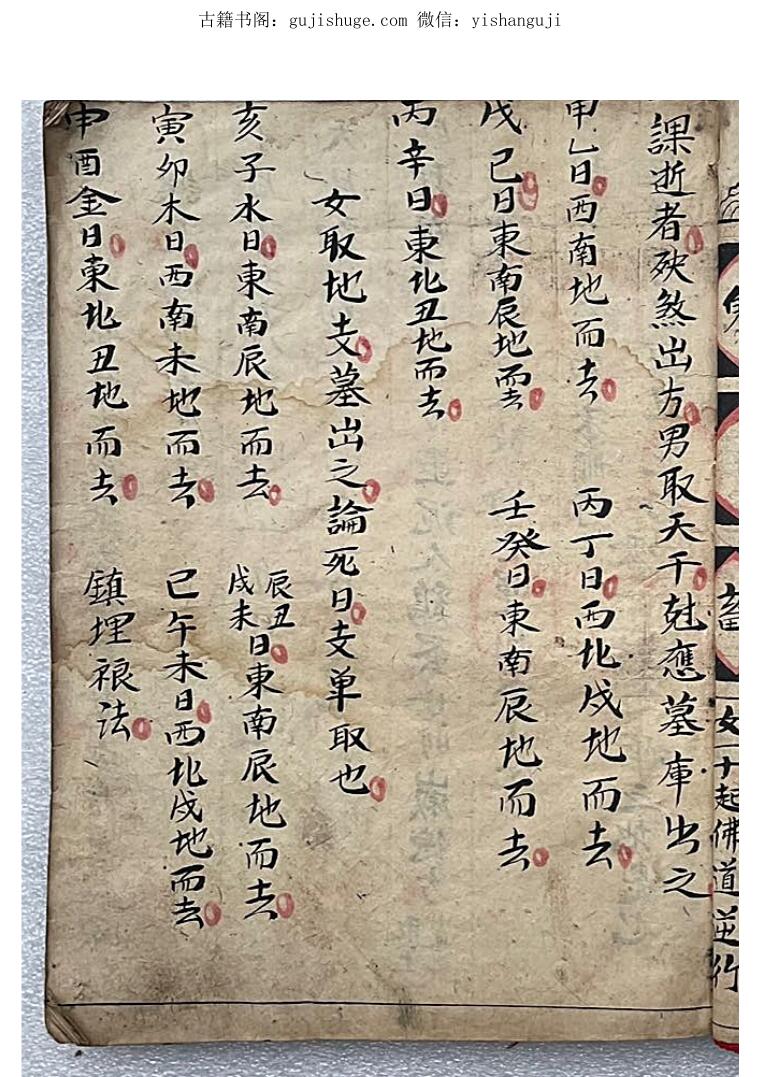 古籍书阁：gujishuge.com 微信：yishanguji
女一十起佛道逆行
課逝者殃煞出方男取天干尅應墓庫出之
甲乙日西南地而去 丙丁日西北戍地而去
戊己日東南辰地而去 壬癸日東南辰地而去
丙辛日東北丑地而去
女取地支墓出之論死日支单取也
亥子水日東南辰地而去 辰丑戌未日東南辰地而去
寅卯木日西南未地而去 巳午未日西北戍地而去
申酉金日東北丑地而去 鎮埋裉法